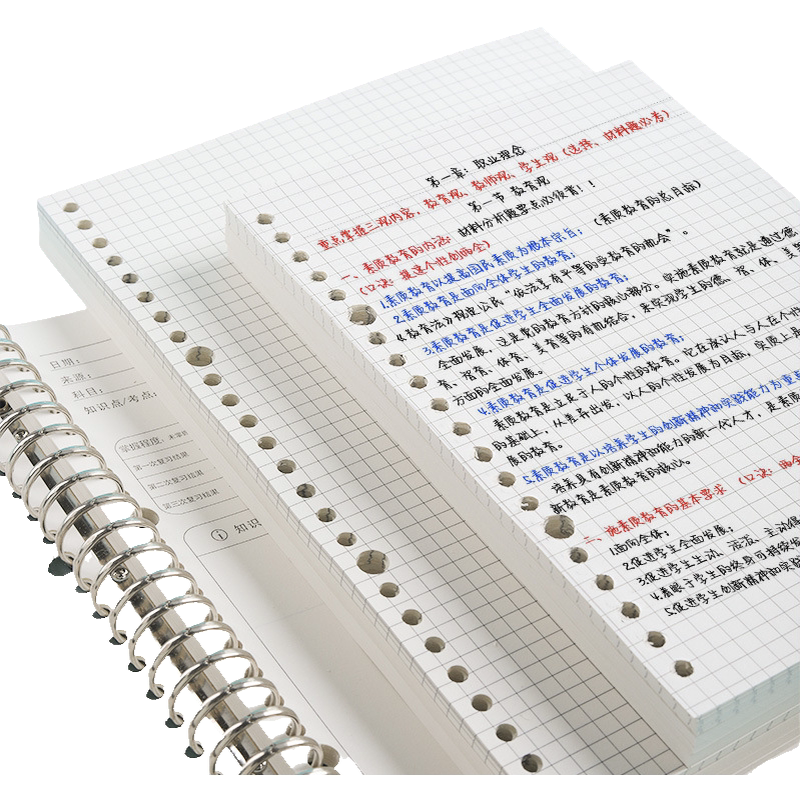 第一章: 职业理念
重点掌握三观内容, 教育观、教师观、学生观 (选择、材料题必考)
第一节 教育观
材料分析题要点必须背!!
一、素质教育的内涵
(口诀: 提造个性创两全)
1.素质教育以提高国民素质为根本宗旨; (素质教育的总目标)
2.素质教育是面向全体学生的教育;
《教育法》规定公民“依法享有平等的受教育的机会”。
3.素质教育是促进学生全面发展的教育;
全面发展, 这是党的教育方针的核心部分。实施素质教育就是通过德
育、智育、体育、美育等的有机结合, 来实现学生的德、智、体、美
方面的全面发展。
4.素质教育是促进学生个体发展的教育;
素质教育是立足于人的个性的教育。它在承认人与人在个性
的基础上, 从差异出发, 以人的个性发展为目标, 实质上是
展的教育。
5.素质教育是以培养学生的创新精神和实践能力为重点
培养具有创新精神和能力的新一代人才, 是素质
新教育是素质教育的核心。
二、施素质教育的基本要求 (口诀: 两全
1.面向全体;
2.促进学生全面发展;
3.促进学生主动、活泼、主动
4.着眼于学生的终身可持续发
5.促进学生创新精神和实践
日期:
来源:
科目:
知识点/考点:
掌握程度: 未掌握
第一次复习结果
第二次复习结果
第三次复习结果
① 知识